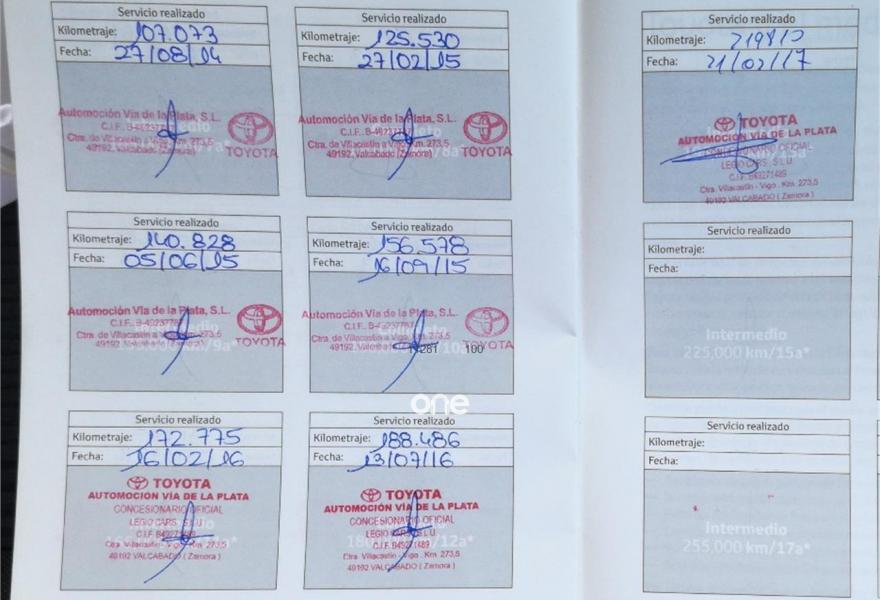 Servicio realizado
Kilometraje: 107.073
Fecha: 27/08/14
Automoción Vía de la Plata, S.L.
C.I.F. B-49237767
Ctra. de Villacastín a Vigo, Km. 273,5
49192, Valcabado (Zamora)
TOYOTA
Servicio realizado
Kilometraje: 125.530
Fecha: 27/02/15
Automoción Vía de la Plata, S.L.
C.I.F. B-49237767
Ctra. de Villacastín a Vigo, Km. 273,5
49192, Valcabado (Zamora)
TOYOTA
Servicio realizado
Kilometraje:
Fecha: 21/02/17
TOYOTA
AUTOMOCIÓN VÍA DE LA PLATA
CONCESIONARIO OFICIAL
LEGIO CARS, S.L.U.
C.I.F. B49271489
Ctra. Villacastín - Vigo . Km. 273,5
49192 VALCABADO ( Zamora )
Servicio realizado
Kilometraje: 140.828
Fecha: 05/06/15
Automoción Vía de la Plata, S.L.
C.I.F. B-49237767
Ctra. de Villacastín a Vigo, Km. 273,5
49192, Valcabado (Zamora)
TOYOTA
Servicio realizado
Kilometraje: 156.578
Fecha: 16/09/15
Automoción Vía de la Plata, S.L.
C.I.F. B-49237767
Ctra. de Villacastín a Vigo, Km. 273,5
49192, Valcabado (Zamora)
TOYOTA
100
Servicio realizado
Kilometraje:
Fecha:
Intermedio
225.000 km/15a*
one
Servicio realizado
Kilometraje: 172.775
Fecha: 16/02/16
TOYOTA
AUTOMOCIÓN VÍA DE LA PLATA
CONCESIONARIO OFICIAL
LEGIO CARS, S.L.U.
C.I.F. B49271489
Ctra. Villacastín - Vigo . Km. 273,5
49192 VALCABADO ( Zamora )
Servicio realizado
Kilometraje: 188.486
Fecha: 13/07/16
TOYOTA
AUTOMOCIÓN VÍA DE LA PLATA
CONCESIONARIO OFICIAL
LEGIO CARS, S.L.U.
C.I.F. B49271489
Ctra. Villacastín - Vigo . Km. 273,5
49192 VALCABADO ( Zamora )
Servicio realizado
Kilometraje:
Fecha:
Intermedio
255.000 km/17a*